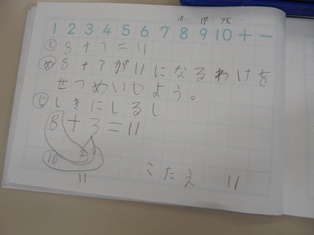 1 2 3 4 5 6 7 8 9 10 + −
も 8+3=11
め 8+3が11になるわけを
せつめいしよう。
じ しきにしるし
8+3=11
10
11
こたえ 11